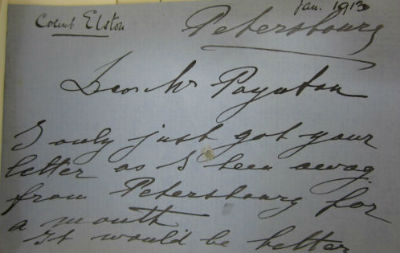 Count Elston
Jan. 1913
Petersbourg
Dear Mr Poynton
I only just got your
letter as I been away
from Petersbourg for
a month
It would be better